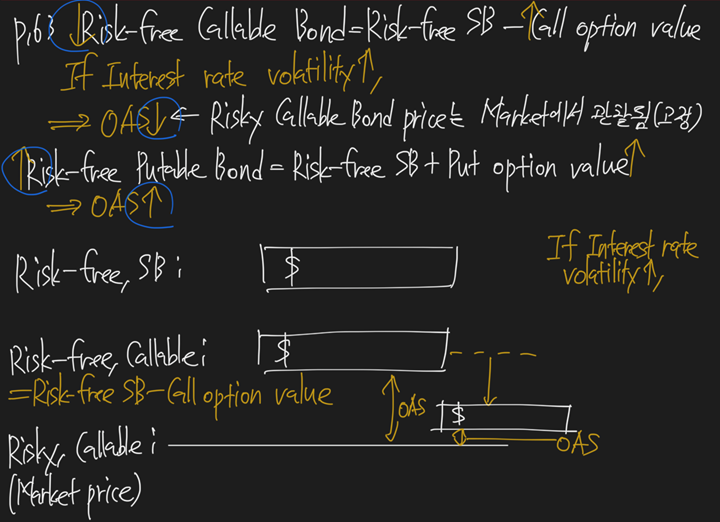 p.63 ↓Risk-free Callable Bond=Risk-free SB-↑Call option value
If Interest rate volatility↑,
⇒ OAS↓ ← Risky Callable Bond price는 Market에서 관찰됨(고정)
↑Risk-free Putable Bond=Risk-free SB+Put option value↑
⇒ OAS↑
If Interest rate
volatility↑,
Risk-free, SB :
$
Risk-free, Callable :
$
=Risk-free SB-Call option value
OAS
$
Risky, Callable :
OAS
(Market price)